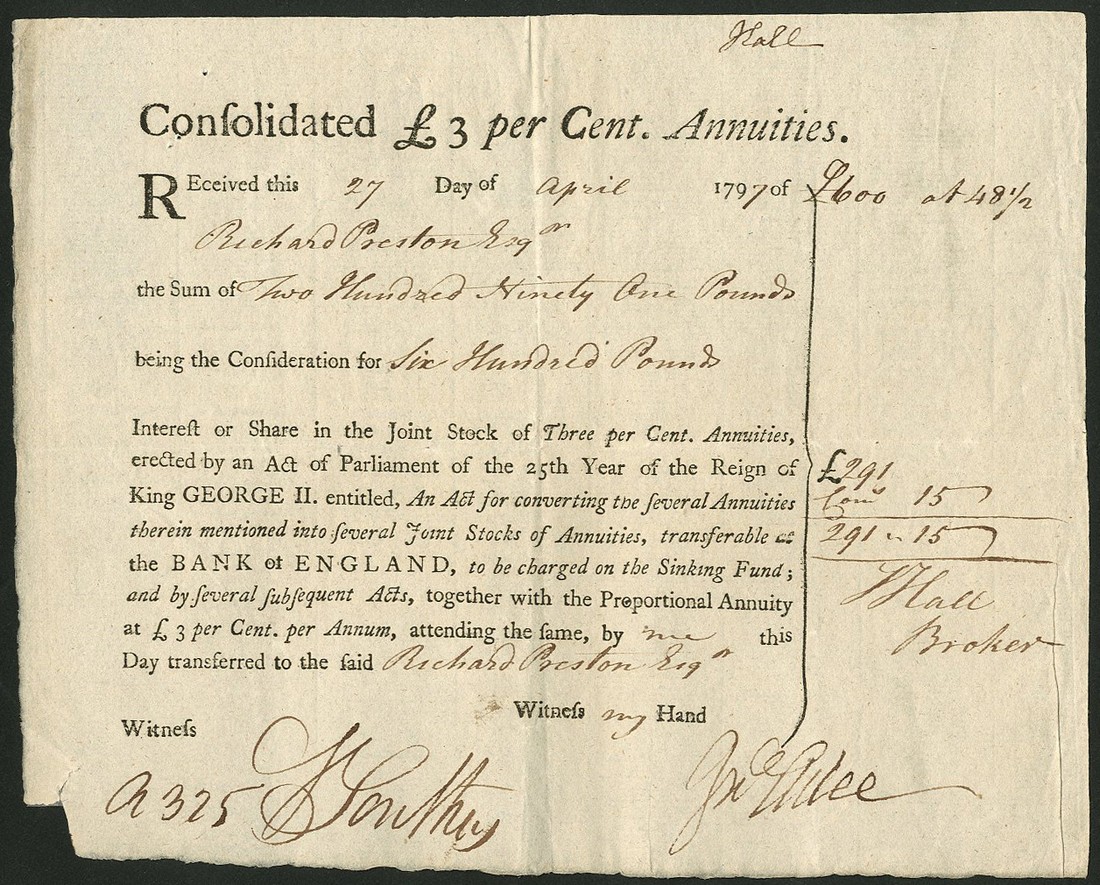 Hall
Conſolidated £ 3 per Cent. Annuities.
REceived this 27 Day of April 1797 of £600 at 48 1/2
Richard Preston Esqr
the Sum of Two Hundred Ninety One Pounds
being the Conſideration for Six Hundred Pounds
Intereſt or Share in the Joint Stock of Three per Cent. Annuities,
erected by an Act of Parliament of the 25th Year of the Reign of
King GEORGE II. entitled, An Act for converting the ſeveral Annuities
therein mentioned into ſeveral Joint Stocks of Annuities, transferable at
the BANK of ENGLAND, to be charged on the Sinking Fund;
and by ſeveral ſubſequent Acts, together with the Proportional Annuity
at £ 3 per Cent. per Annum, attending the ſame, by me this
Day transferred to the ſaid Richard Preston Esqr
£291
15
291 " 15
Hall
Broker
Witneſs my Hand
Witneſs
A 325